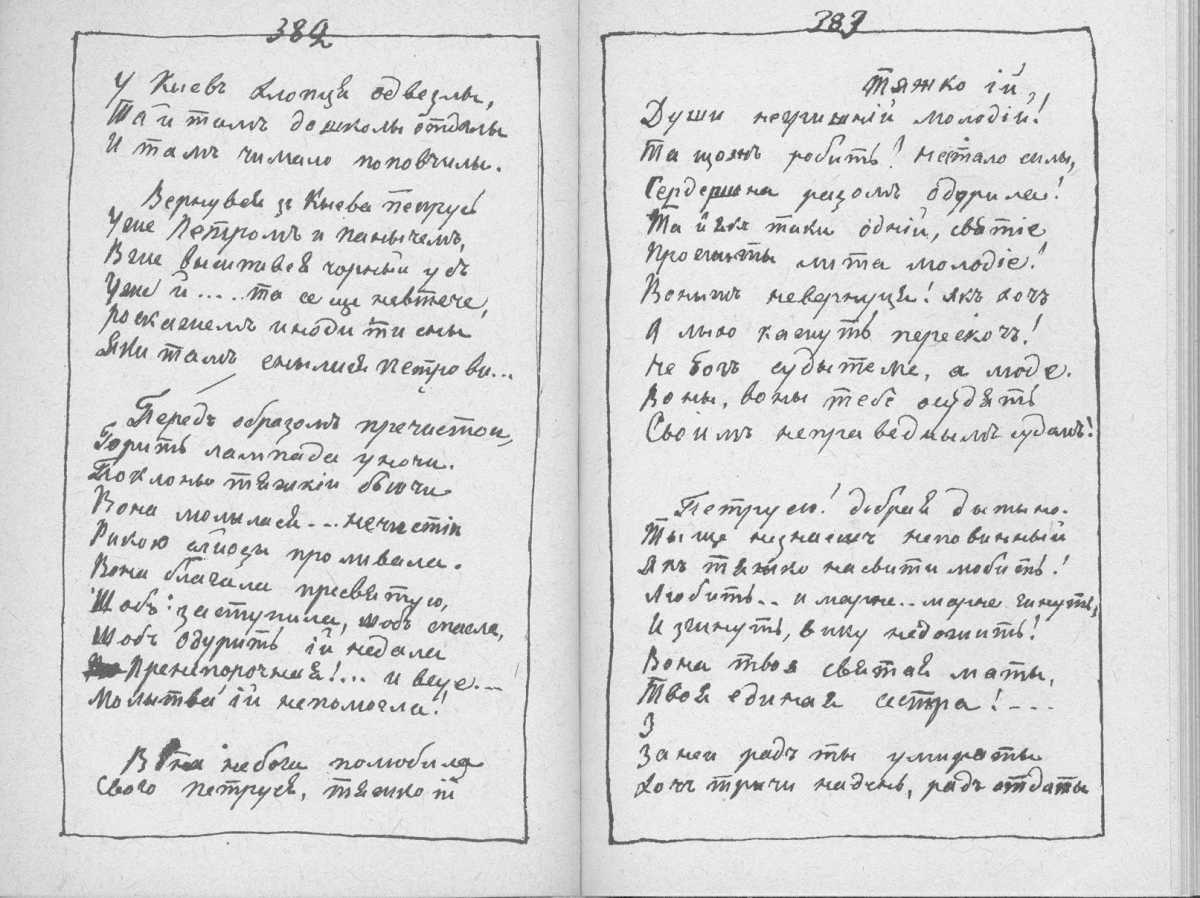 382
У Кыевъ хлопця одвезлы,
Та й тамъ до школы отдалы
И тамъ чимало поповчилы.
Вернувся зъ Кыева петрусь
Уже Петромъ и панычемъ,
Вже высыпався чорный усъ
Уже й .... та се ще невтече,
роскажемъ иноди ти сны
Яки тамъ снылися петрови...
Передъ образомъ пречистои,
Горить лампада уночи.
Поклоны тяжкіи бьючи
Вона молылася... нечистіи
Рикою слiозы проливала.
Вона благала пресвятую,
Щобъ заступила, щобъ спасла,
Щобъ одурить ій недала
Пренепорочная!... и всуе...
Молытва ій непомогла!
Вона небога полюбила
Свого петруся, тяжко ій
383
тяжко ій,
Души неутишній молодій!
Та щожъ робить! нестало силы,
Сердешна разомъ одурила!
Та й якъ таки одній, святіе
Прожиты лита молодіе!
Воныжъ невернуця! якъ хочъ
А мою касуть перескочъ!
Не богъ судытеме, а люде.
Воны, воны тебе осудять
Своімъ неправеднымъ судомъ!
Петрусю! добрая дытыно.
Ты ще незнаешъ неповинный
Якъ тяжко на свити любить!
Любить.. и марне.. марне гинуть,
И згинуть, вику недожить!
Вона твоя святая маты,
Твоя единая сестра!...
З
За неи радъ ты умираты
Хочъ тричи надень, радъ отдаты